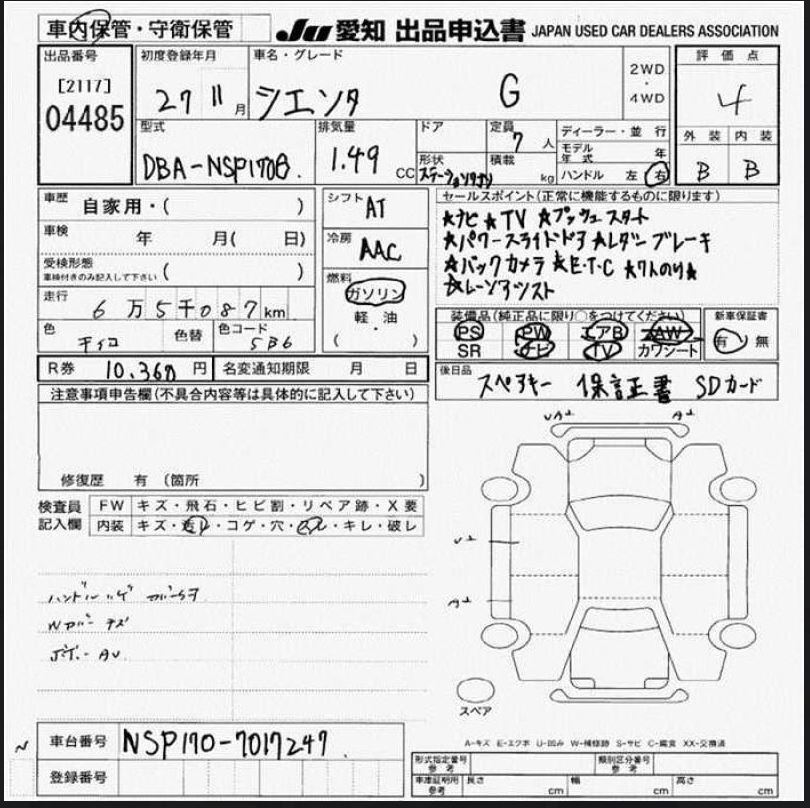 車内保管・守衛保管
JU 愛知 出品申込書 JAPAN USED CAR DEALERS ASSOCIATION
出品番号 初度登録年月 車名・グレード 2WD ・ 4WD 評価点
[2117] 04485 27 11月 シエンタ G 4
型式 排気量 ドア 定員 7人 ディーラー・並行 外装 内装
モデル年式 年
DBA-NSP170G 1.49 CC 形状 ステーションワゴン 積載 kg ハンドル 左 右 B B
車歴 自家用・( ) シフト AT セールスポイント(正常に機能するものに限ります)
★ナビ ★TV ★プッシュスタート
車検 年 月( 日) 冷房 AAC ★パワースライドドア ★レダーブレーキ
受検形態 車検付きのみ記入して下さい ( ) ★バックカメラ ★E・T・C ★7人のり★
燃料 ガソリン 軽・油 ( ) ★レーンアシスト
走行 6万5千087km 装備品(純正品に限り○をつけてください) 新車保証書
色 チャコ 色替 色コード 5B6 PS PW エアB AW 有 無
SR ナビ TV カワシート
R券 10,360円 名変通知期限 月 日 後日品 スペアキー 保証書 SDカード
注意事項申告欄(不具合内容等は具体的に記入して下さい)
修復歴 有 (箇所 )
検査員記入欄 FW キズ・飛石・ヒビ割・リペア跡・X要
内装 キズ・汚レ・コゲ・穴・スレ・キレ・破レ
ハンドルハゲ
Wガバーキズ
AU
スペア
A-キズ E-エクボ U-凹み W-補修跡 S-サビ C-腐食 XX-交換済
車台番号 NSP170-7017247
登録番号
形式指定番号 参考 類別区分番号 参考
車庫証明用 参考 長さ cm 幅 cm 高さ cm